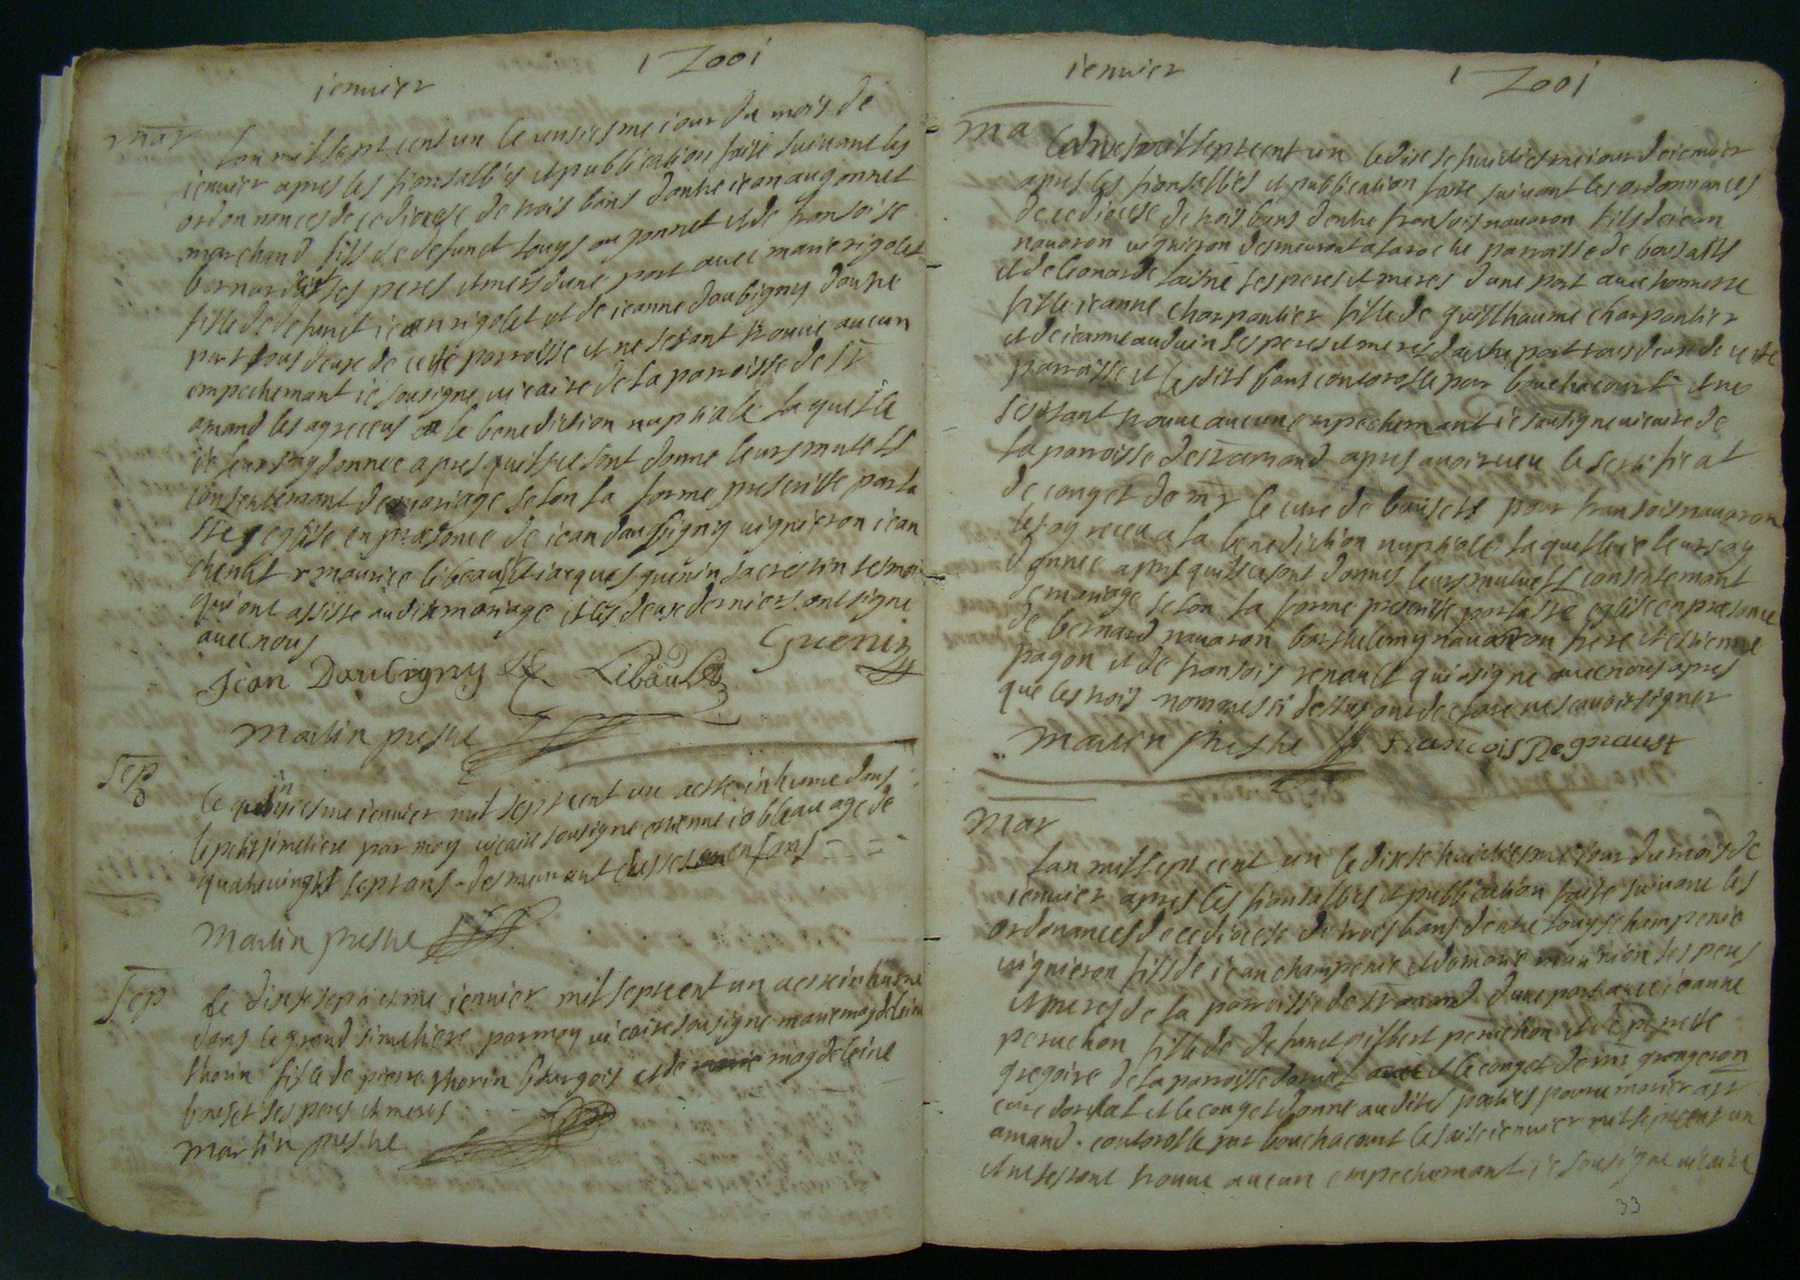 ienvier 1 7001
mar
Lan mil sept cent un le iour du mois de
ienvier apres les fiansallies et publication faite suivant les
ordonnances de ce diocese de trois bans dentre iean augonnet
marchand fils de defunct louys augonnet et de fransoise
bernard ses peres et meres dune part avec marie rigolet
fille de defunct iean rigolet et de ieanne daubigny dautre
part tous deux de cette parroisse et ne sestant trouvé aucun
empechemant ie sousigne vicaire de la parroisse de st
amand les ay receus a la benediction nuptiale laquelle
ie leurs ay donnee apres quil se sont donne leurs mutuels
consentemant de mariage selon la forme prescritte par la
ste eglise en præsence de iean daubigny vigneron iean
maurice libault et iacques guenin sacrestin tesmoins
qui ont assisté audit mariage et les deux derniers ont signe
avec nous
Jean Daubigny Libault Guenin
Martin prestre
Sep
le quinsiesme ienvier mil sept cent un a esté inhume dans
le petit simetiere par moy vicaire sousigne estienne iobleau age de
quatre vingt sept ans demeurant ches ses enfans
Martin prestre
Sep
Le dixseptiesme ienvier mil sept cent un a esté inhumé
dans le grand simetiere par moy vicaire sousigne marie magdeleine
thorin fille de pierre thorin bourgois et de magdeleine
bouset ses peres et meres
Martin prestre
ienvier 1 7001
ma
Lan mil sept cent un le dixsehuictiesme iour de ienvier
apres les fiansallies et publication faite suivant les ordonnances
de ce diocese de trois bans dentre fransois navaron fils de iean
navaron vigneron desmeurant a la roche parroisse de
et de leonarde laisne ses peres et meres dune part avec honneste
fille ieanne charpantier fille de guillhaume charpantier
et de ieanne auduin ses peres et meres dautre part tous deux de cette
parroisse et lesdits bans controllé par bouchacourt et ne
sestant trouvé aucun empechemant ie sousigne vicaire de
la parroisse de st amand apres avoir veu le sertificat
de conget de mr le curé de pour fransois navaron
les ay receu a la benediction nuptiale laquelle ie leurs ay
donnee apres quil se sont donnes leurs mutuells consentemant
de mariage selon la forme prescritte par la ste eglise en præsence
de bernard navaron barthelemy navaron frere et estienne
pagon et de fransois renault qui a signe avec nous apres
que les trois nommes si dessus ont declare ne scavoir signer
Martin prestre Francois Regnault
Mar
Lan mil sept cent un le dixsehuictiesme iour du mois de
ienvier apres les fiansallies et publication faite suivant les
ordonances de ce diocese de trois bans dentre louys champenie
vigneron fils de iean champenie et de ses peres
et meres de la parroisse de st amand dune part avec ieanne
peruchon fille de defunct gilbert peruchon et de perrette
gregoire de la parroisse dorval et le conget de mr grangeron
curé dorval et le conget donné au dites parties pour se marier a st
amand controllé par bouchacourt le saise ienvier mil sept cent un
et ne sestant trouve aucun empechemant ie sousigne vicaire
33